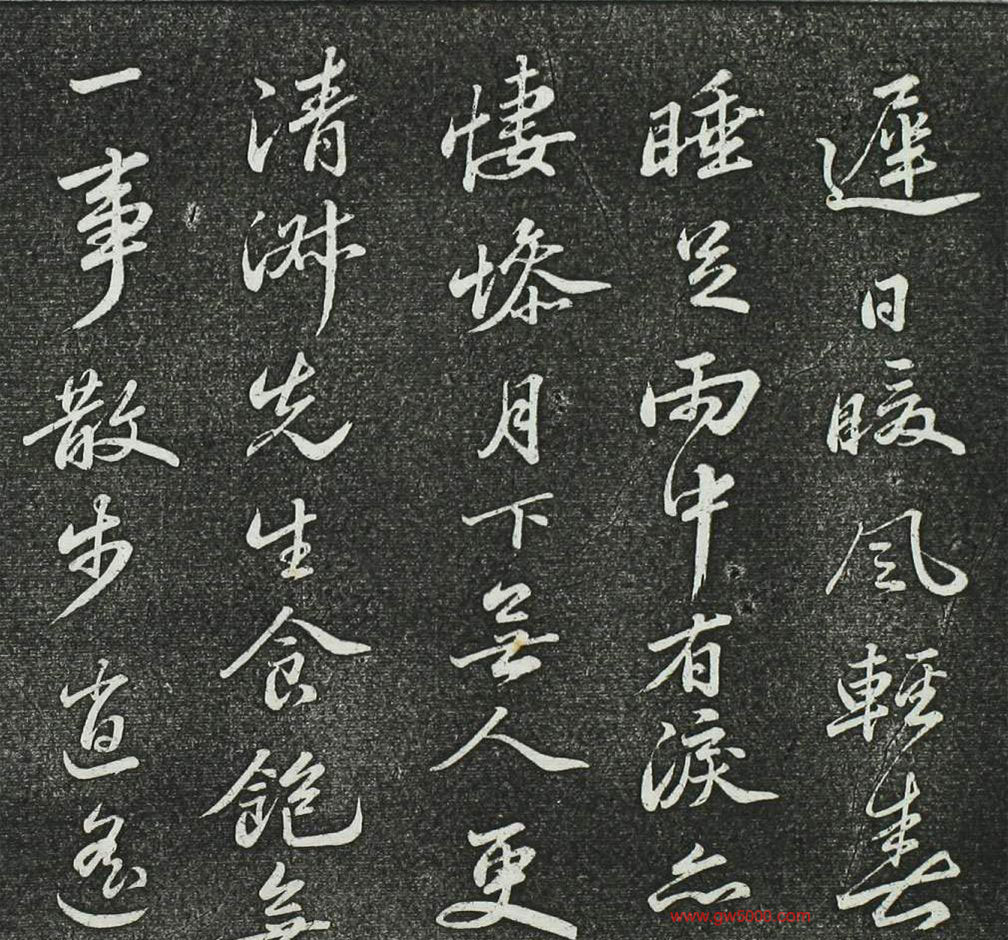 遲日暖風輕春
睡足雨中有淚亦
悽慘月下無人更
清淑先生食飽無
一事散步逍遙
www.gw8000.com